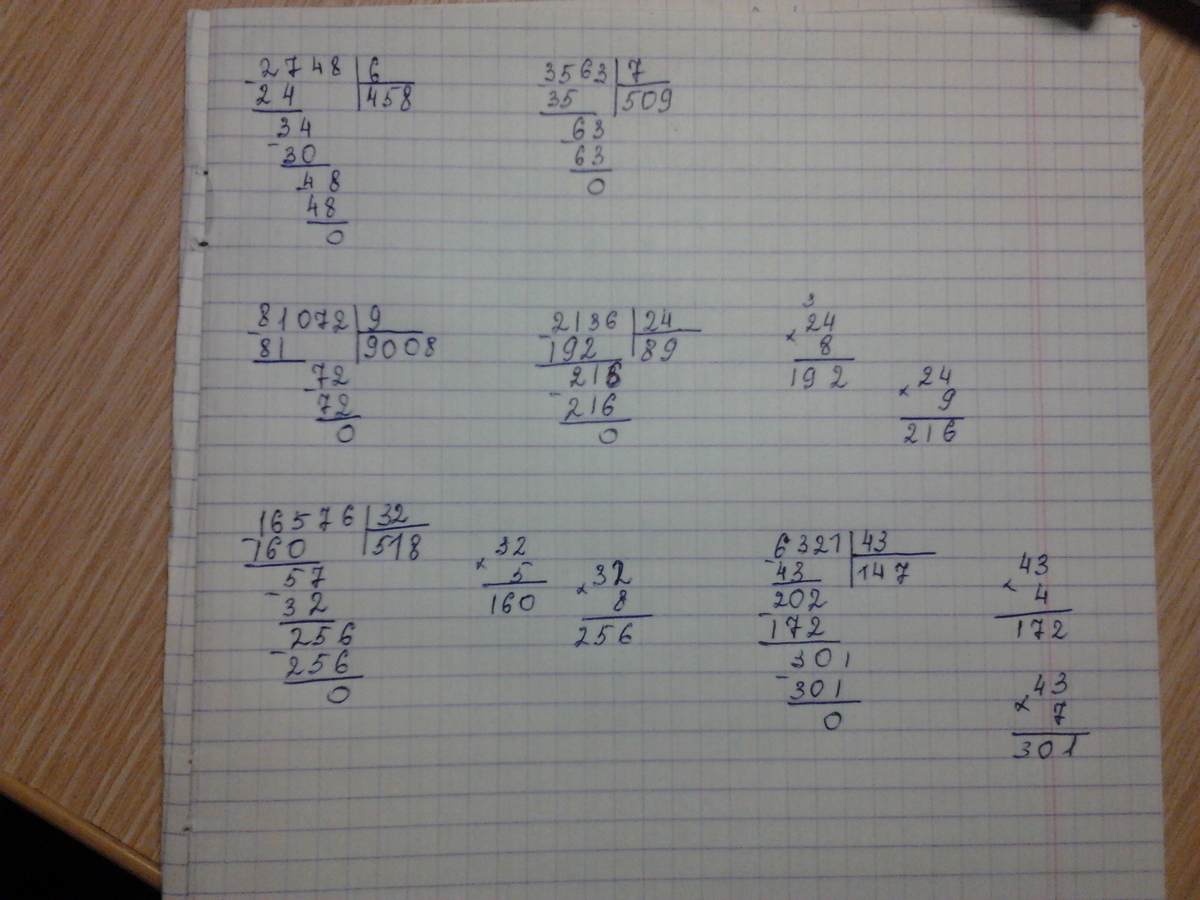 2748 6
- 24 458
34
- 30
48
- 48
0
3563 7
- 35 509
63
- 63
0
81072 9
- 81 9008
72
- 72
0
2136 24
- 192 89
216
- 216
0
3
24
× 8
192
24
× 9
216
16576 32
- 160 518
57
- 32
256
- 256
0
32
× 5
160
32
× 8
256
6321 43
- 43 147
202
- 172
301
- 301
0
43
× 4
172
43
× 7
301